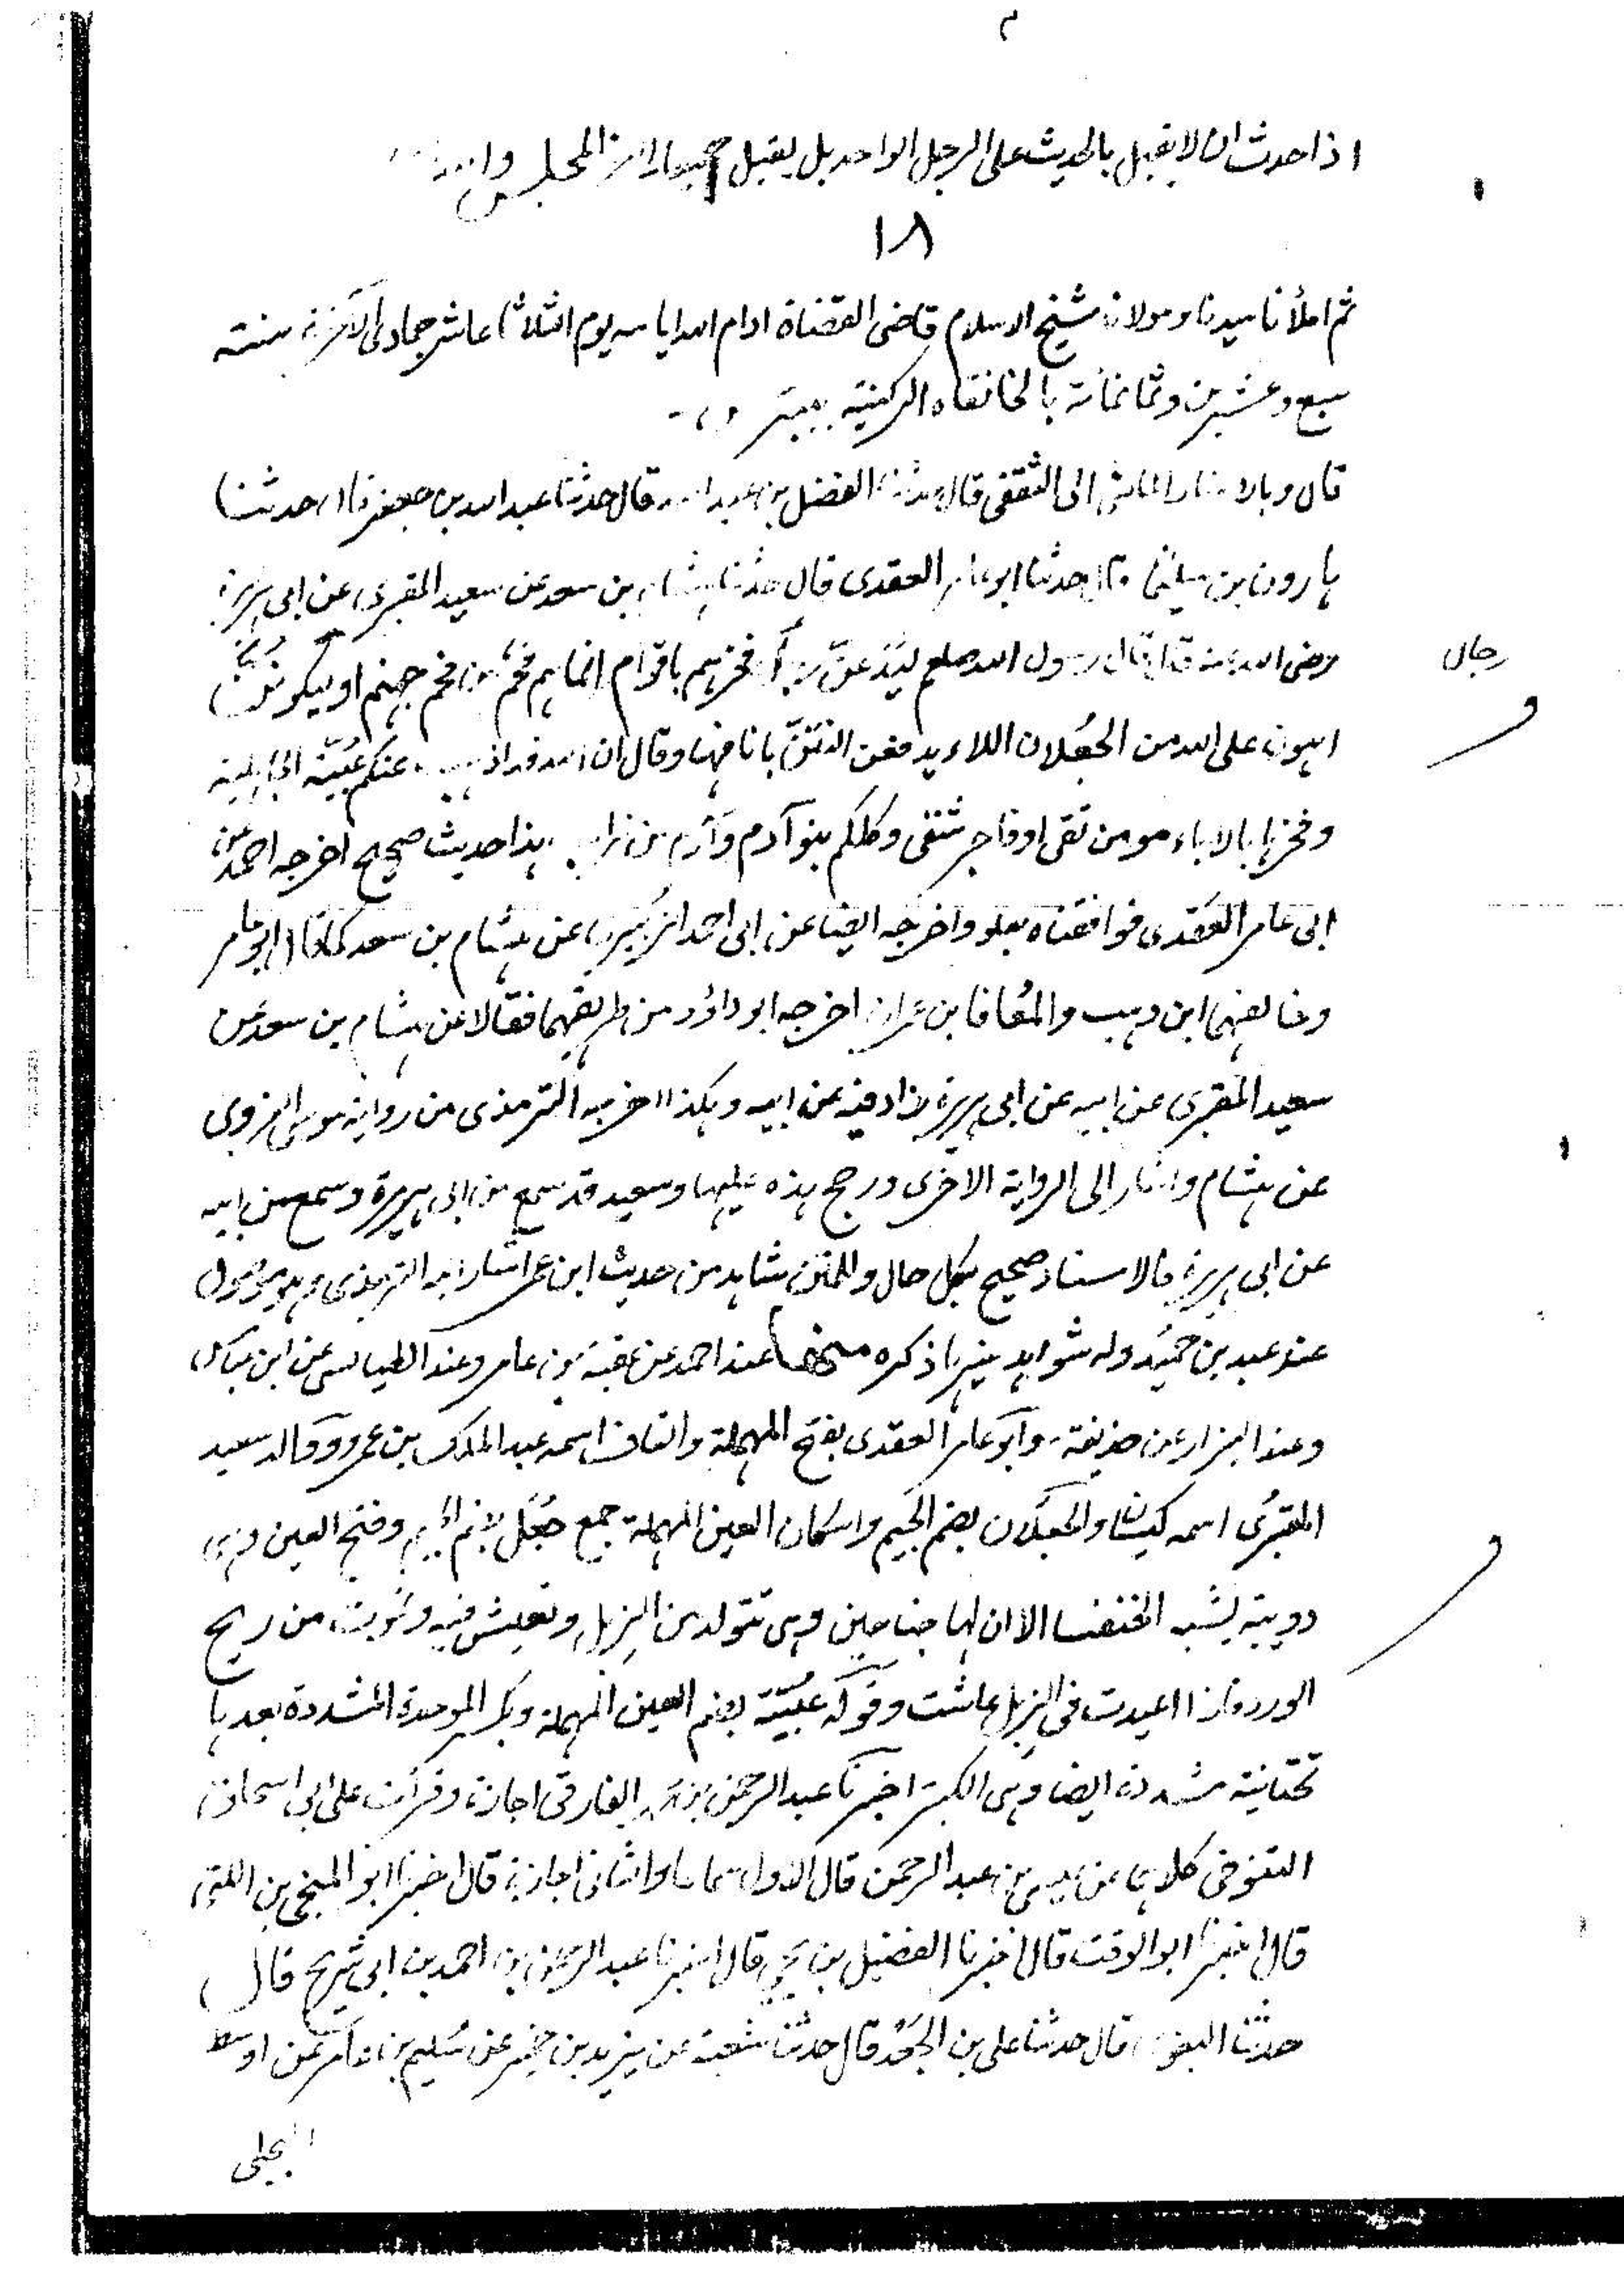 اذا حدث ان لا يقبل بالحديث على الرجل الواحد بل يقبل جميعا المجلس
١٨
ثم املأنا سيدنا ومولانا شيخ الاسلام قاضى القضاة ادام الله ايامه يوم الثلاثا عاشر جمادى الآخرة سنة
سبع وعشرين وثمانمائة بالخانقاه الركنية بيبرس
قال الى الثقفى قال حدثنا الفضل بن قال حدثنا عبد الله بن جعفر قال حدثنا
هارون بن سليمن قال حدثنا ابو عامر العقدى قال حدثنا هشام بن سعد عن سعيد المقبرى عن ابى هريرة
رضى الله عنه قال قال رسول الله صلعم ليدعن رجال فخرهم باقوام انما هم فحم من فحم جهنم او ليكونن
اهون على الله من الجعلان اللاء يدفعن النتن بانافهما وقال ان الله قد اذهب عنكم عبية الجاهلية
وفخرها بالاباء مومن تقى او فاجر شقى وكلكم بنو آدم وآدم من تراب هذا حديث صحيح اخرجه احمد عن
ابى عامر العقدى فوافقناه بعلو واخرجه ايضا عن ابى احمد الزبيرى عن هشام بن سعد كما قال ابو عامر
وخالفهما ابن وهب والمعافا بن عمران اخرجه ابو داؤد من طريقهما فقالا عن هشام بن سعد عن
سعيد المقبرى عن ابيه عن ابى هريرة زاد فيه عن ابيه وهكذا اخرجه الترمذى من رواية موسى الفروى
عن هشام واشار الى الرواية الاخرى ورجح هذه عليها وسعيد قد سمع من ابى هريرة وسمع من ابيه
عن ابى هريرة فالاسناد صحيح بكل حال وللمتن شاهد من حديث ابن عمر اشار اليه الترمذى وهو موصول
عند عبد بن حميد وله شواهد غيرها ذكره منها عند احمد عن عقبة بن عامر وعند الطيالسى عن ابن عباس
وعند البزار عن حذيفة وابو عامر العقدى بفتح المهملة والقاف اسمه عبد الملك بن عمرو ووالد سعيد
المقبرى اسمه كيسان والجعلان بضم الجيم واسكان العين المهملة جمع جعل بضم الجيم وفتح العين وهى
دويبة يشبه الخنفسا الا ان لها جناحين وهى تتولد من الزبل وتعيش فيه وتموت من ريح
الورد فاذا اعيدت فى الزبل عاشت وقوله عبية بضم العين المهملة وبكسر الموحدة المشددة بعدها
تحتانية مشددة ايضا وهى الكبر اخبرنا عبد الرحمن بن الفارقى اجازة وقرأت على ابى اسحاق
التنوخى كلاهما عن عيسى بن عبد الرحمن قال الاول سماعا والثانى اجازة قال اخبرنا ابو المنجى بن اللتى
قال اخبرنا ابو الوقت قال اخبرنا الفضيل بن يحيى قال اخبرنا عبد الرحمن بن احمد بن ابى شريح قال
حدثنا البغوى قال حدثنا على بن الجعد قال حدثنا شعبة عن يزيد بن خمير عن سليم بن عامر عن اوسط
البجلى
رجال